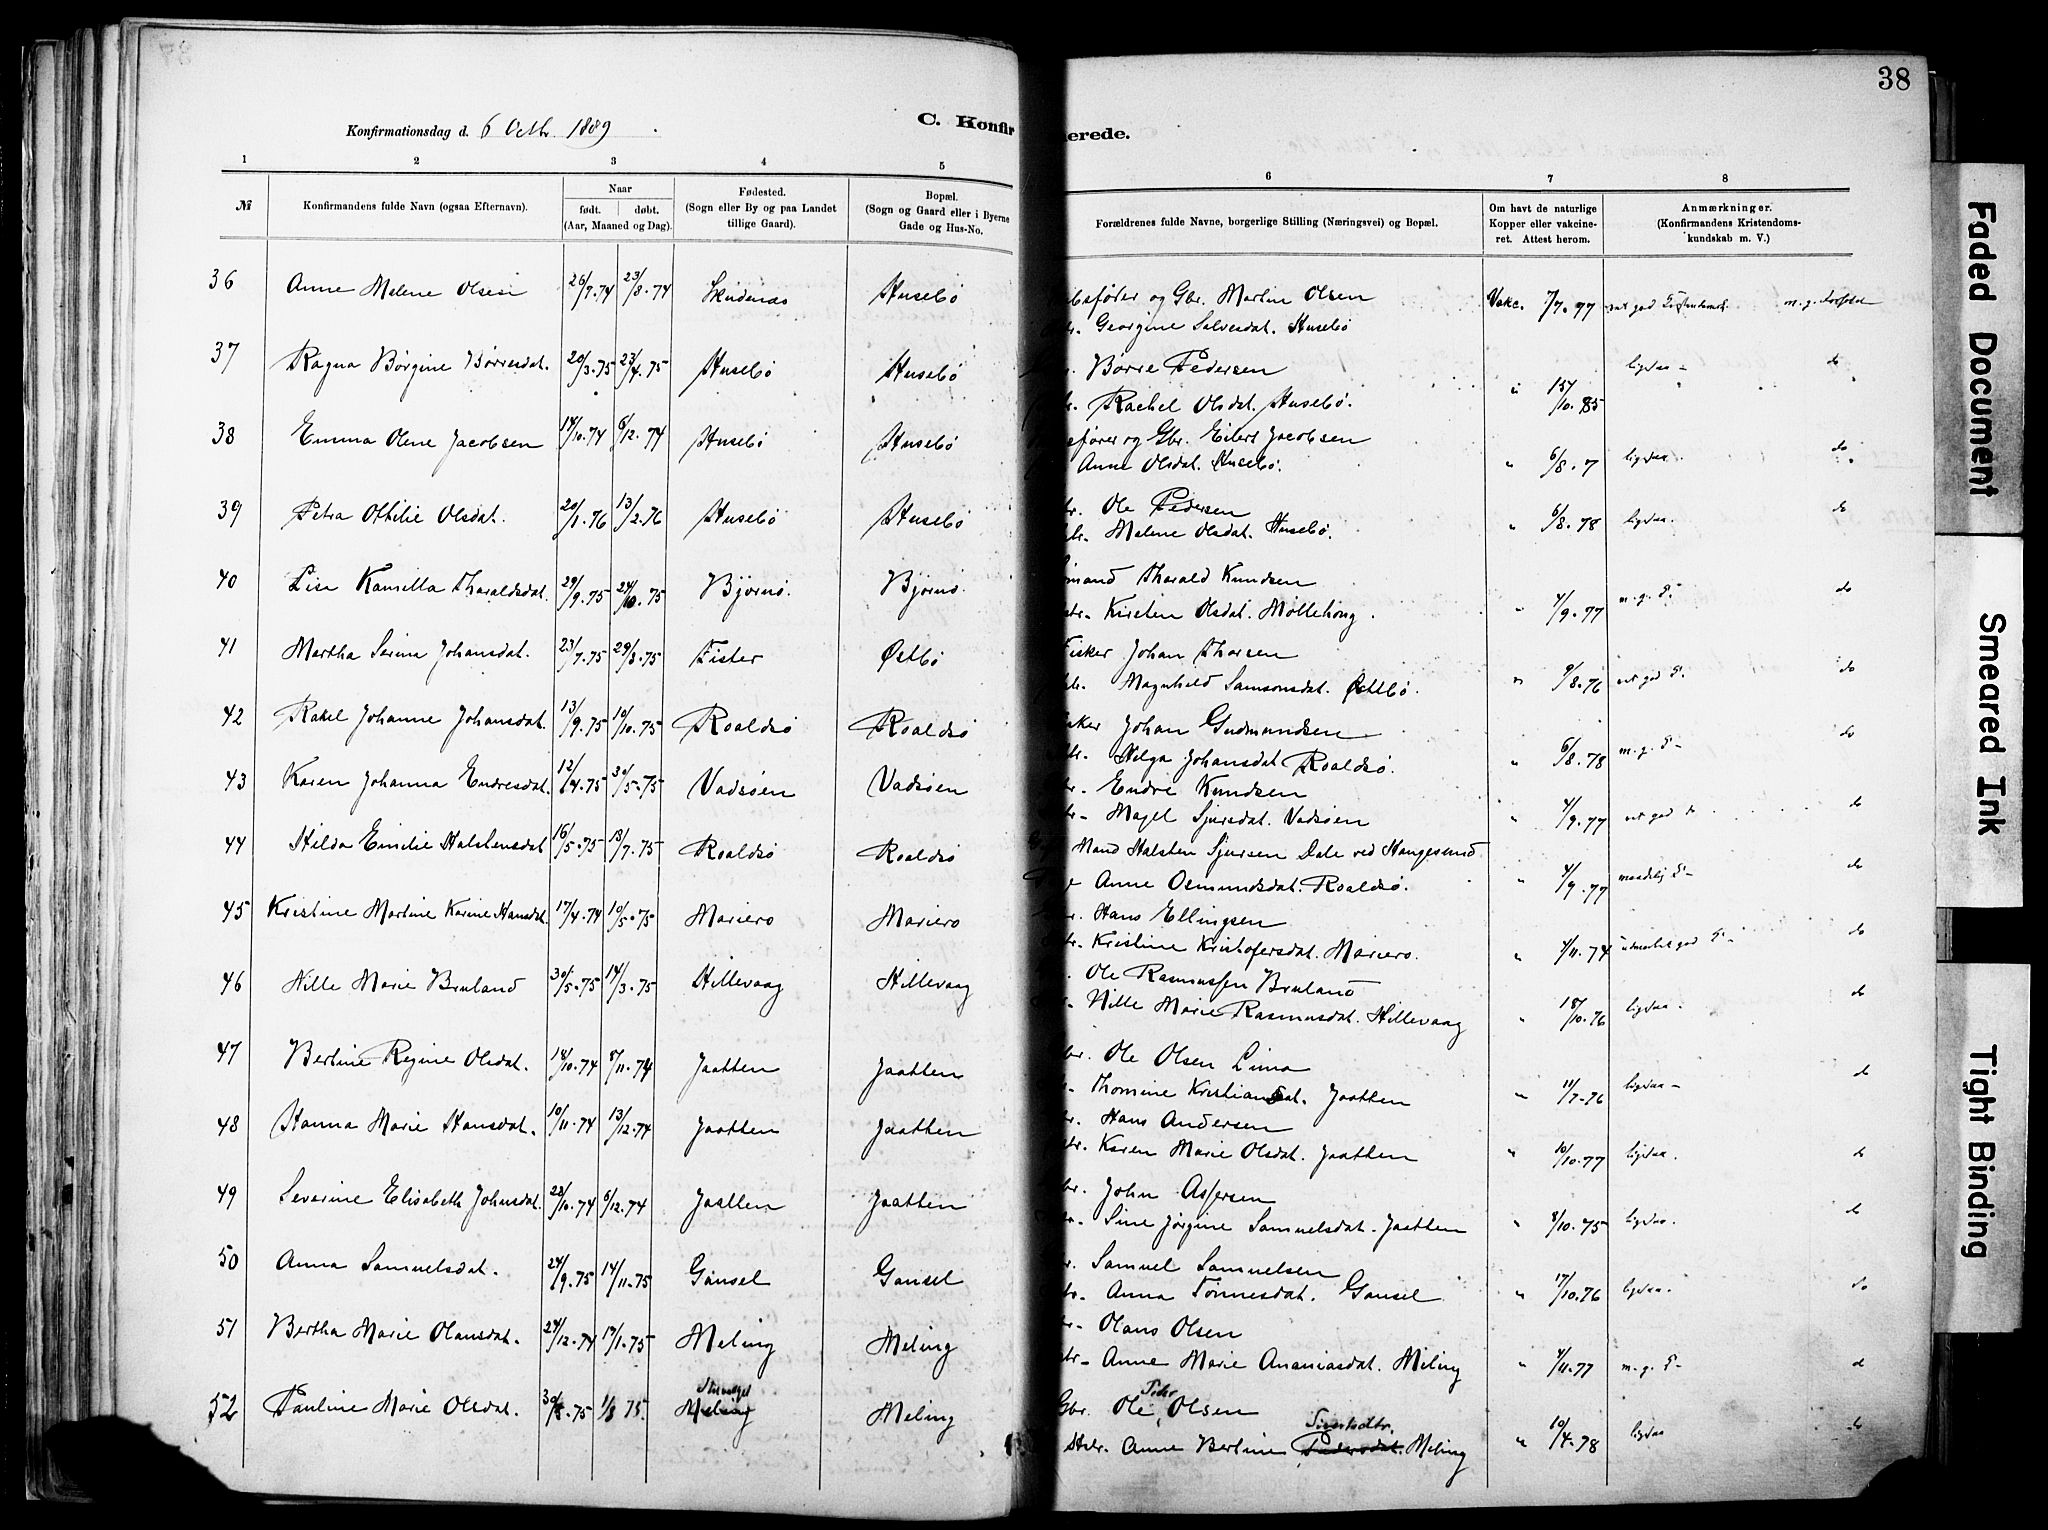 38
Konfirmationsdag d. 6 Octbr. 1889
C. Konfir
merede.
1 2 3 4 5 6 7 8
№
Konfirmandens fulde Navn (ogsaa Efternavn).
Naar
født. døbt.
(Aar, Maaned og Dag).
Fødested.
(Sogn eller By og paa Landet
tillige Gaard).
Bopæl.
(Sogn og Gaard eller i Byerne
Gade og Hus-No.
Forældrenes fulde Navne, borgerlige Stilling (Næringsvei) og Bopæl.
Om havt de naturlige
Kopper eller vakcine-
ret. Attest herom.
Anmærkninger.
(Konfirmandens Kristendoms-
kundskab m. V.)
36 Anne Melene Olsen 26/7.74 23/8.74 Skudenæs Husebø
Gbr. Martin Olsen Vakc. 7/7.77
Georgine Salvesdat. Husebø
37 Ragna Børgine Børresdat. 20/3.75 23/4.75 Husebø Husebø
Børre Pedersen ligesaa do
Rachel Olsdat. Husebø. " 15/10.85
38 Emma Oline Jacobsen 14/10.74 6/12.74 Husebø Husebø
fører og Gbr. Eilert Jacobsen do
Anne Olsdat. Husebø. " 6/8.7 ligesaa.
39 Petra Othilie Olsdat. 20/1.76 13/2.76 Husebø Husebø
Ole Pedersen do
Melene Olsdat. Husebø. " 6/8.78 ligesaa.
40 Lise Kamilla Tharaldsdat. 29/9.75 24/10.75 Bjørnø. Bjørnø.
Tharald Knudsen m. g. do
Kirsten Olsdat. Møllehoug. " 4/9.77
41 Martha Serina Johansdat. 23/7.75 29/8.75 Fister Østbø
Fisker Johan Thorsen do
Magnhild Samsonsdat. Østbø. " 9/8.76 god
42 Rakel Johanne Johansdat. 13/9.75 10/10.75 Roaldsø Roaldsø
Johan Gudmundsen do
Helga Johansdat Roaldsø. " 6/8.78 m. g.
43 Karen Johanna Endresdat. 12/4.75 30/5.75 Vadsøen Vadsøen
Endre Knudsen do
Magel Sjursdat. Vadsøen " 4/9.77 god
44 Hilda Emilie Halstensdat 16/5.75 18/7.75 Roaldsø Roaldsø
Mand Halsten Sjursen Dale ved Haugesund do
Anne Osmundsdat. Roaldsø. " 4/9.77 maadelig
45 Kristine Martine Karine Hansdat. 17/4.74 10/5.75 Mariero Mariero
Hans Ellingsen do
Kristine Kristofersdat. Mariero. " 4/11.74 udmærket god
46 Nille Marie Bruland 30/5.75 14/3.75 Hillevaag Hillevaag
Ole Rasmussen Bruland do
Nille Marie Rasmusdat. Hillevaag " 18/10.76 ligesaa.
47 Bertine Regine Olsdat. 18/10.74 8/11.74 Jaatten Jaatten
Ole Olsen Lima do
Thomine Kristiansdat. Jaatten " 11/7.76 ligesaa
48 Hanna Marie Hansdat. 10/11.74 13/12.74 Jaatten Jaatten
Hans Andersen
Karen Marie Olsdat. Jaatten " 10/10.77 ligesaa. do
49 Severine Elisabeth Johnsdat. 28/10.74 6/12.74 Jaatten Jaatten
John Assersen do
Sine Jørgine Samuelsdat. Jaatten " 8/10.75 ligesaa.
50 Anna Samuelsdat. 24/9.75 14/11.75 Gausel Gausel
Samuel Samuelsen
Anna Tønnesdat. Gausel " 17/10.76 ligesaa. do
51 Bertha Marie Olausdat. 24/12.74 17/1.75 Meling Meling
Olaus Olsen
Anne Marie Ananiasdat. Meling " 4/11.77 m. g.
52 Pauline Marie Olsdat. 30/5.75 1/8 75. Meling Meling
Gbr. Ole Peder Olsen do
Hstr. Anne Bertine Sivertsdtr. Pedersdat. Meling " 10/4.78 ligesaa
Faded Document
Smeared Ink
Tight Binding